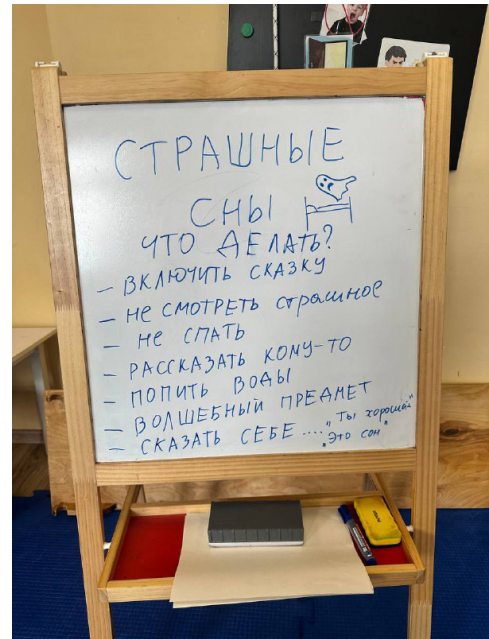 СТРАШНЫЕ
СНЫ
ЧТО ДЕЛАТЬ?
– ВКЛЮЧИТЬ СКАЗКУ
– НЕ СМОТРЕТЬ страшное
– НЕ СПАТЬ
– РАССКАЗАТЬ КОМУ-ТО
– ПОПИТЬ ВОДЫ
– ВОЛШЕБНЫЙ ПРЕДМЕТ
– СКАЗАТЬ СЕБЕ .... "Ты хороший"
"Это сон"